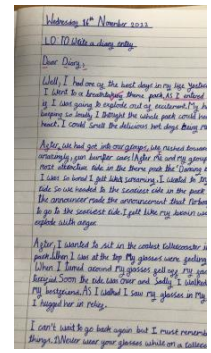 Wednesday 16th November 2022
L.O. TO Write a diary entry
Dear Diary,
Well, I had one of the best days in my life Yesterday
I went to a breathtaking theme park. AS I entered
if I was going to explode out of excitement. My
beeping so loudly I thought the whole park could hear
heart. I could smell the delicious hot dogs being
After, we had got into our groups, we rushed towards
amazingly, fun bumper cars. After me and my group
most attractive ride in the theme park the
I was so bored I felt like screaming. I wanted to
ride so we headed to the scariest ride in the park
the announcer made the announcement that
to go to the scariest ride. I felt like my brain
explode with anger.
After, I wanted to sit in the coolest rollercoaster in
park. When I was at the top My glasses were
When I turned around my glasses fell off my
terrified. Soon the ride was over and Sadly, I walked
my bestfriend. AS I walked I saw my glasses in My
I hugged her in relief.
I can't want to go back again but I must remember
things. 1) Never wear your glasses while on a